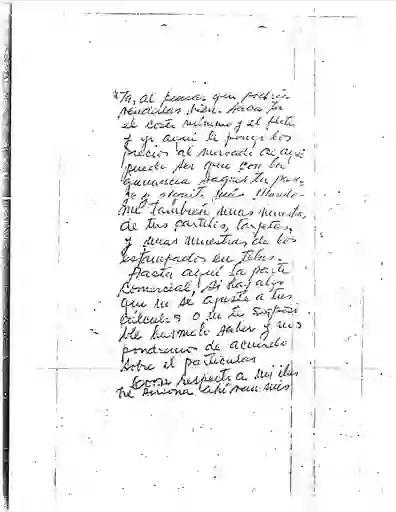 ta, al pensar que podrias
venderlas bien. Saca tu
el costo minimo y el flete
y yo aqui le pongo los
precios al mercado de aqui
puede ser que con la
ganancia saques tu pasa
je y quizás más. Manda-
me también unas muestras
de tus carteles, tarjetas,
y unas muestras de los
estampados en telas.
Hasta aqui la parte
comercial, si hay algo
que no se ajuste a tus
cálculos o no te sea posi
ble hazmelo saber y nos
pondremos de acuerdo
sobre el particular
Con respecto a mi
ahi van mis